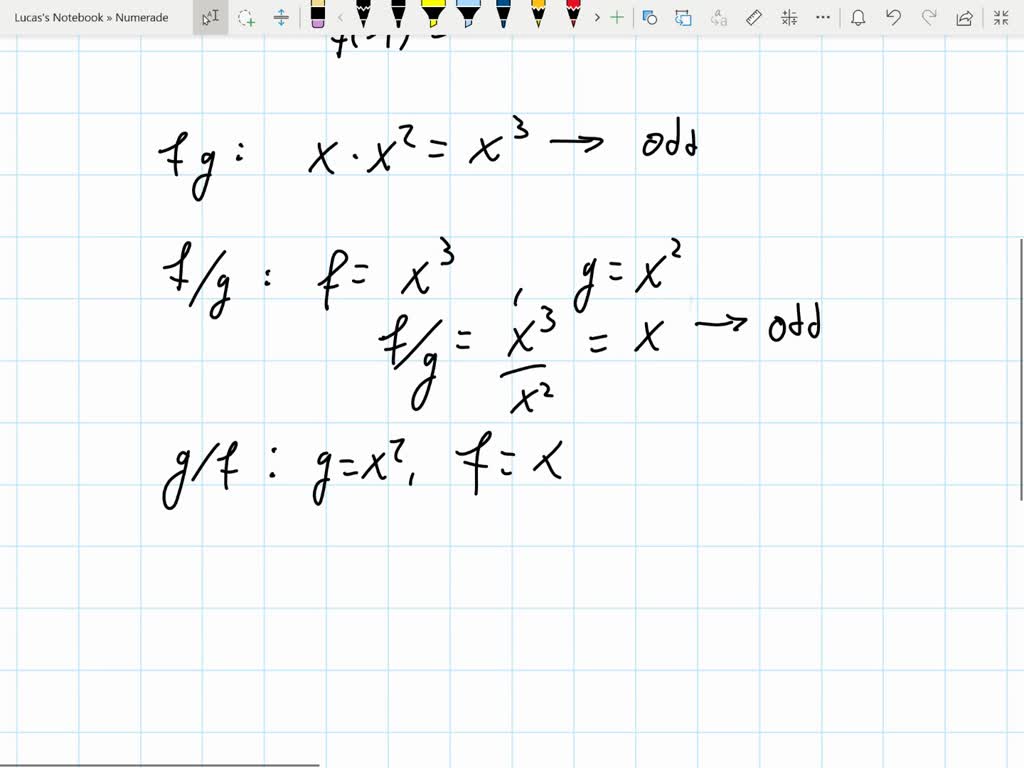 Lucas's Notebook » Numerade
f g : x · x² = x³ → odd
f/g : f = x³ , g = x²
f/g = x³/x² = x → odd
g/f : g = x², f = x